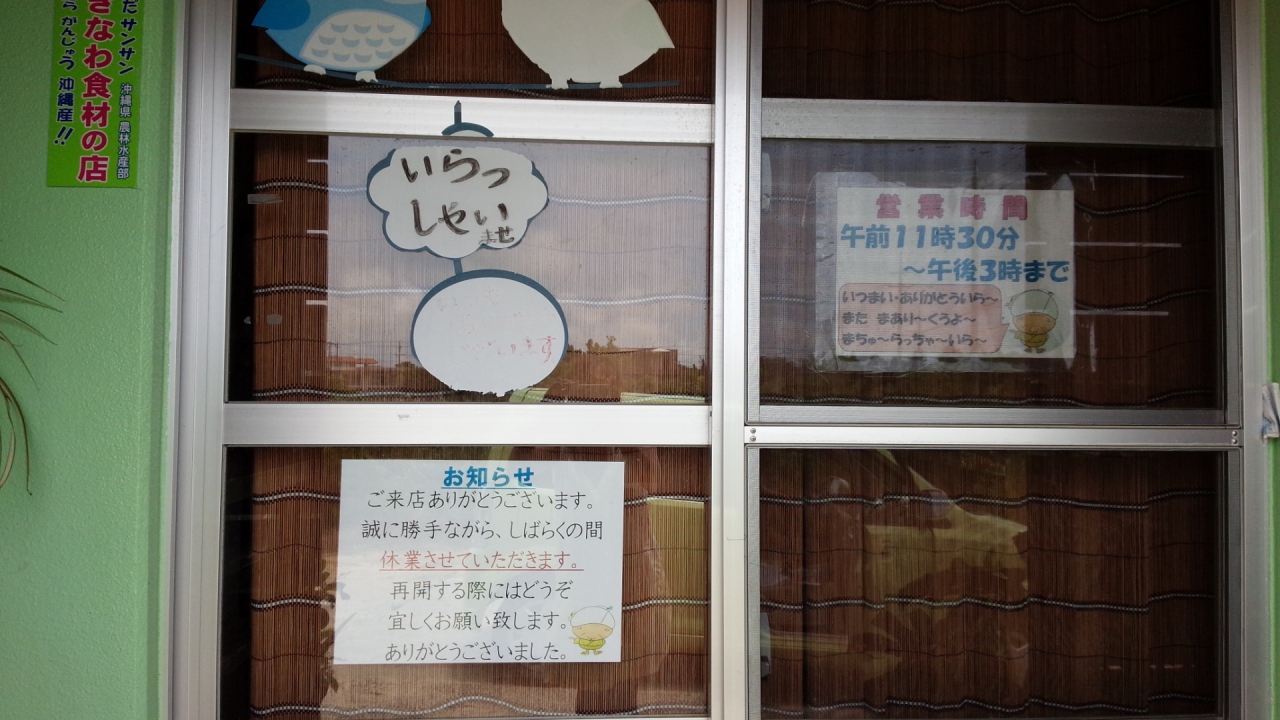 だ サンサン
沖縄県 農林水産部
きなわ食材の店
ら がんじゅう 沖縄産!!
いらっ
しゃい
ませ
ます
営業時間
午前11時30分
～午後3時まで
いつまい・ありがとういら～
また まあり～くうよ～
まちゅ～らっちゃ～いら～
お知らせ
ご来店ありがとうございます。
誠に勝手ながら、しばらくの間
休業させていただきます。
再開する際にはどうぞ
宜しくお願い致します。
ありがとうございました。